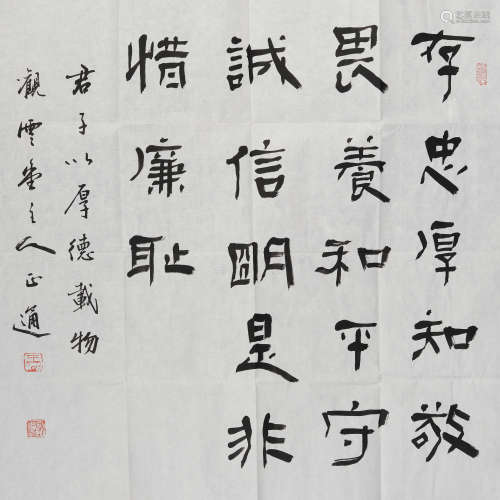 存忠厚知敬
畏養和平守
誠信明是非
惜廉耻
君子以厚德載物
觀雲堂主人正通